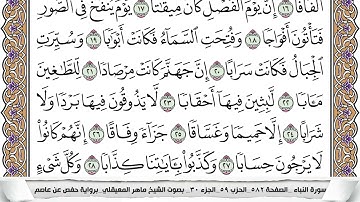 أَلْفَافًا ١٦ إِنَّ يَوْمَ الْفَصْلِ كَانَ مِيقَاتًا ١٧ يَوْمَ يُنفَخُ فِي الصُّورِ
فَتَأْتُونَ أَفْوَاجًا ١٨ وَفُتِحَتِ السَّمَاءُ فَكَانَتْ أَبْوَابًا ١٩ وَسُيِّرَتِ
الْجِبَالُ فَكَانَتْ سَرَابًا ٢٠ إِنَّ جَهَنَّمَ كَانَتْ مِرْصَادًا ٢١ لِّلطَّاغِينَ
مَآبًا ٢٢ لَّابِثِينَ فِيهَا أَحْقَابًا ٢٣ لَّا يَذُوقُونَ فِيهَا بَرْدًا وَلَا
شَرَابًا ٢٤ إِلَّا حَمِيمًا وَغَسَّاقًا ٢٥ جَزَاءً وِفَاقًا ٢٦ إِنَّهُمْ كَانُوا
لَا يَرْجُونَ حِسَابًا ٢٧ وَكَذَّبُوا بِآيَاتِنَا كِذَّابًا ٢٨ وَكُلَّ شَيْءٍ
سورة النباء . الصفحة ٥٨٢ الحزب ٥٩ الجزء ٣٠ . بصوت الشيخ ماهر المعيقلي . برواية حفص عن عاصم